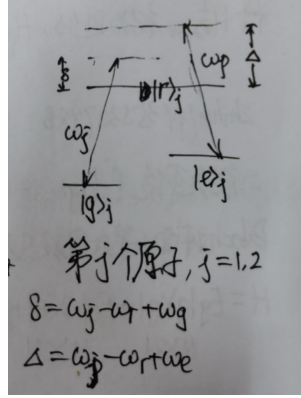 δ
ω_p
Δ
|r⟩_j
ω_j
|e⟩_j
|g⟩_j
第j个原子, j=1,2
δ=ω_j-ω_r+ω_g
Δ=ω_p-ω_r+ω_e